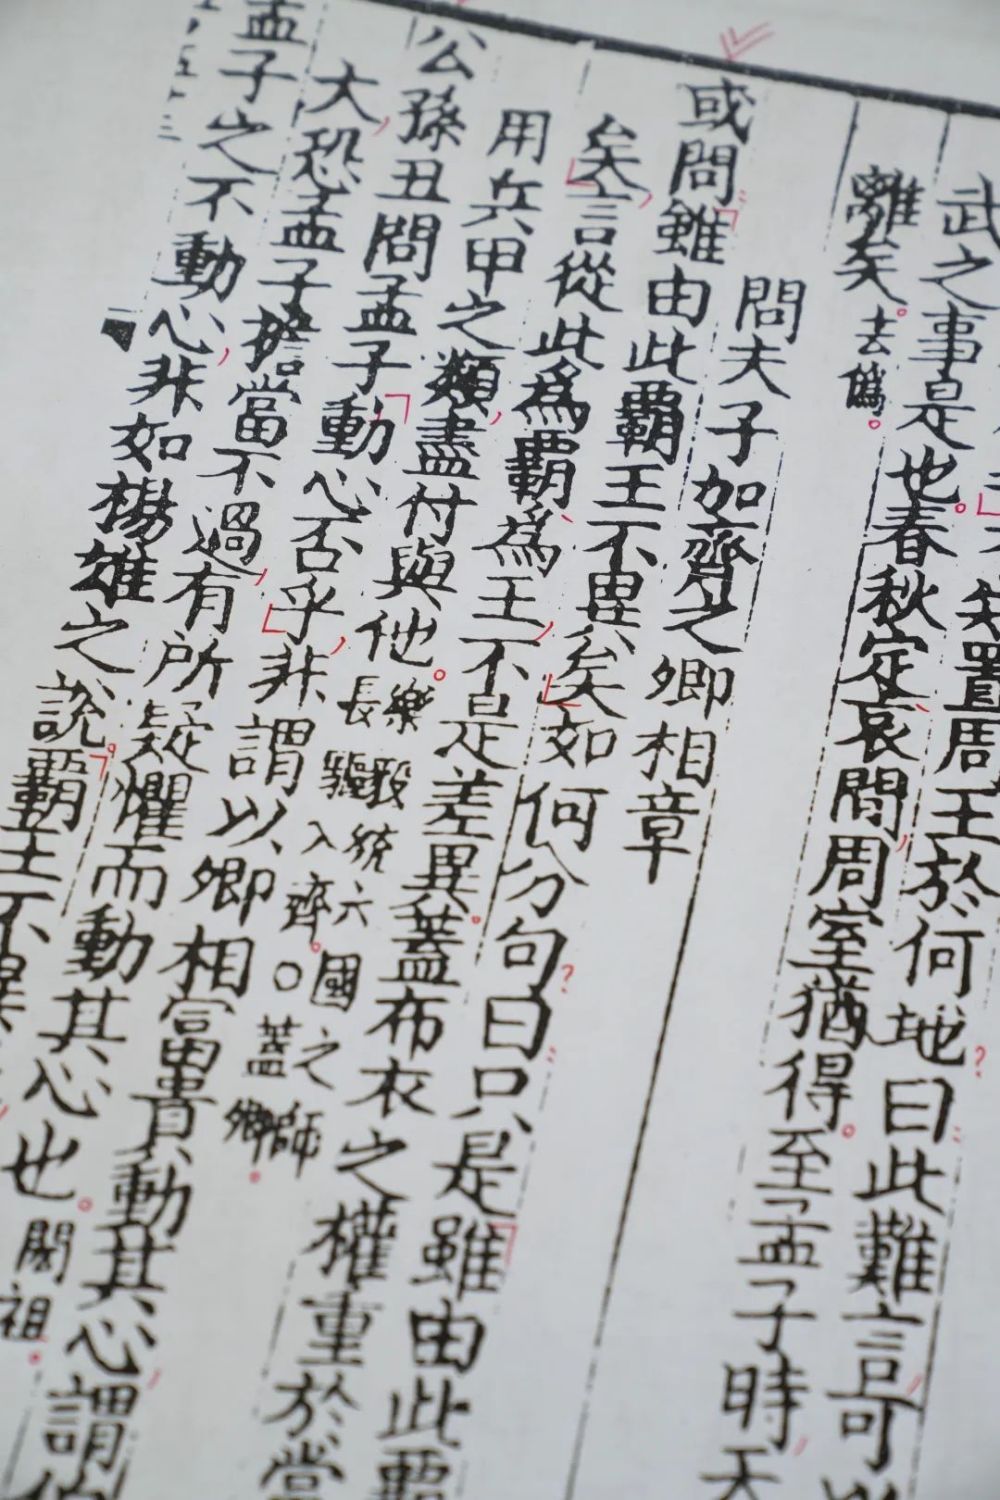 置周王於何地曰此難言可
武之事是也春秋定哀間周室猶得至孟子時天
離矣去偽
問夫子加齊之卿相章
或問雖由此霸王不異矣如何分句曰只是雖由此霸
矣言從此爲霸爲王不是差異蓋布衣之權重於當
用兵甲之類盡付與他樂毅統六國之師
長驅入齊○蓋卿
公孫丑問孟子動心否乎非謂以卿相富貴動其心謂伯
大恐孟子擔當不過有所疑懼而動其心也閎祖
孟子之不動心非如楊雄之說霸王不異